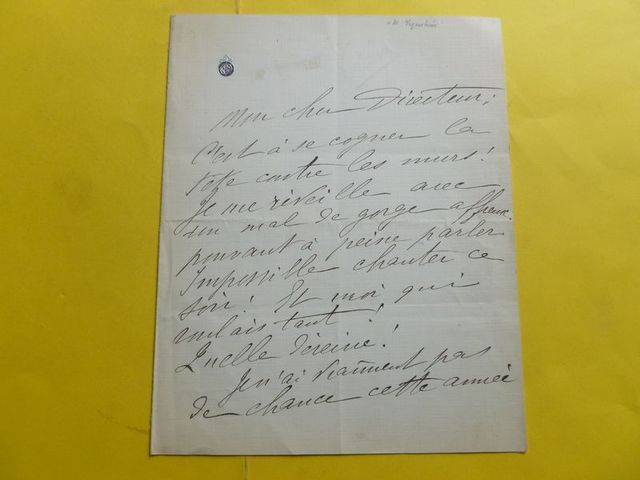 Mon cher Directeur,
C'est à se cogner la
tête contre les murs!
Je me réveille avec
un mal de gorge affreux.
pouvant à peine parler
Impossible chanter ce
soir! Et moi qui
voulais tant!
Quelle déveine!
Je n'ai vraiment pas
de chance cette année